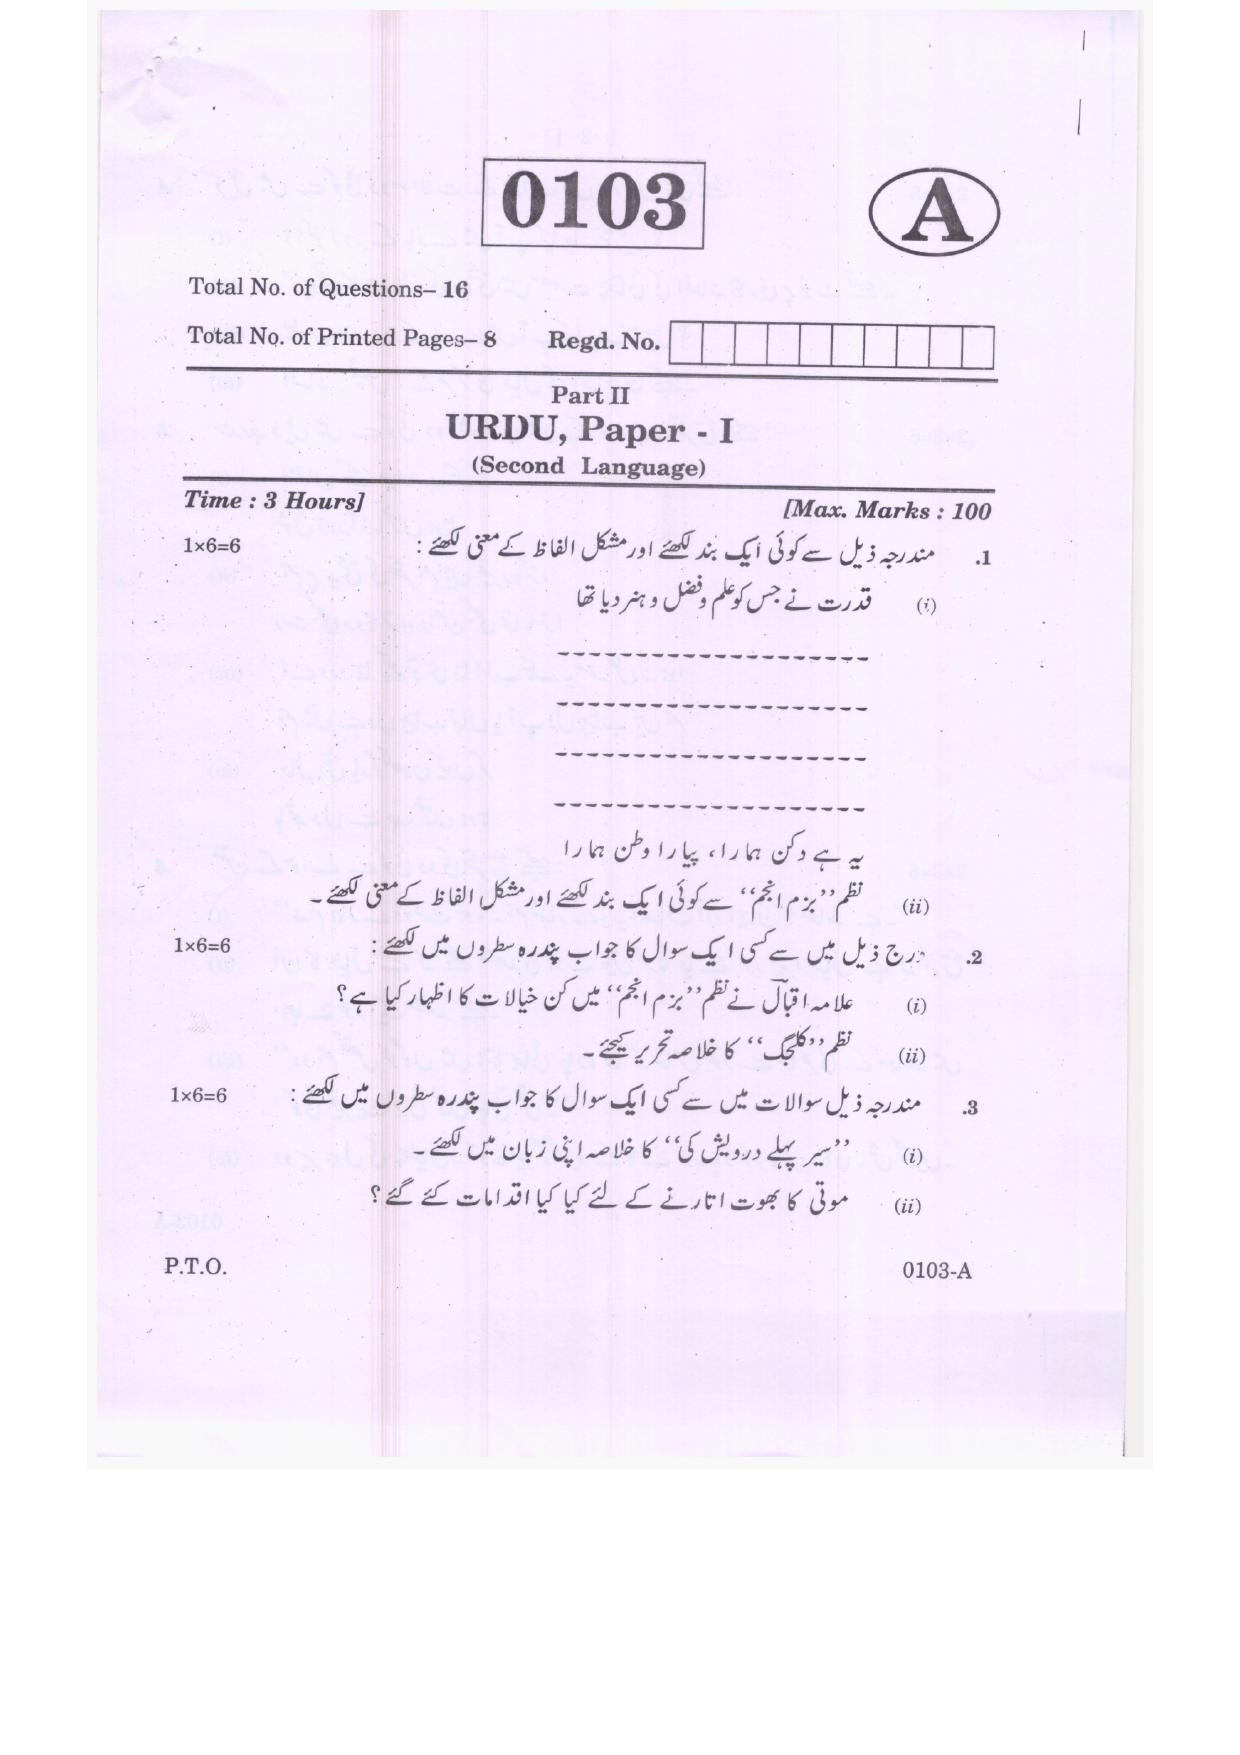 0103
A
Total No. of Questions– 16
Total No. of Printed Pages– 8 Regd. No.
Part II
URDU, Paper - I
(Second Language)
Time : 3 Hours] [Max. Marks : 100
1. مندرجہ ذیل سے کوئی ایک بند لکھئے اور مشکل الفاظ کے معنی لکھئے : 1×6=6
(i) قدرت نے جس کو علم و فضل و ہنر دیا تھا
یہ ہے دکن ہمارا، پیارا وطن ہمارا
(ii) نظم ’’بزم انجم‘‘ سے کوئی ایک بند لکھئے اور مشکل الفاظ کے معنی لکھئے۔
2. درج ذیل میں سے کسی ایک سوال کا جواب پندرہ سطروں میں لکھئے : 1×6=6
(i) علامہ اقبالؔ نے نظم ’’بزم انجم‘‘ میں کن خیالات کا اظہار کیا ہے؟
(ii) نظم ’’کلجگ‘‘ کا خلاصہ تحریر کیجئے۔
3. مندرجہ ذیل سوالات میں سے کسی ایک سوال کا جواب پندرہ سطروں میں لکھئے : 1×6=6
(i) ’’سیر پہلے درویش کی‘‘ کا خلاصہ اپنی زبان میں لکھئے۔
(ii) موتی کا بھوت اتارنے کے لئے کیا کیا اقدامات کئے گئے؟
P.T.O. 0103-A